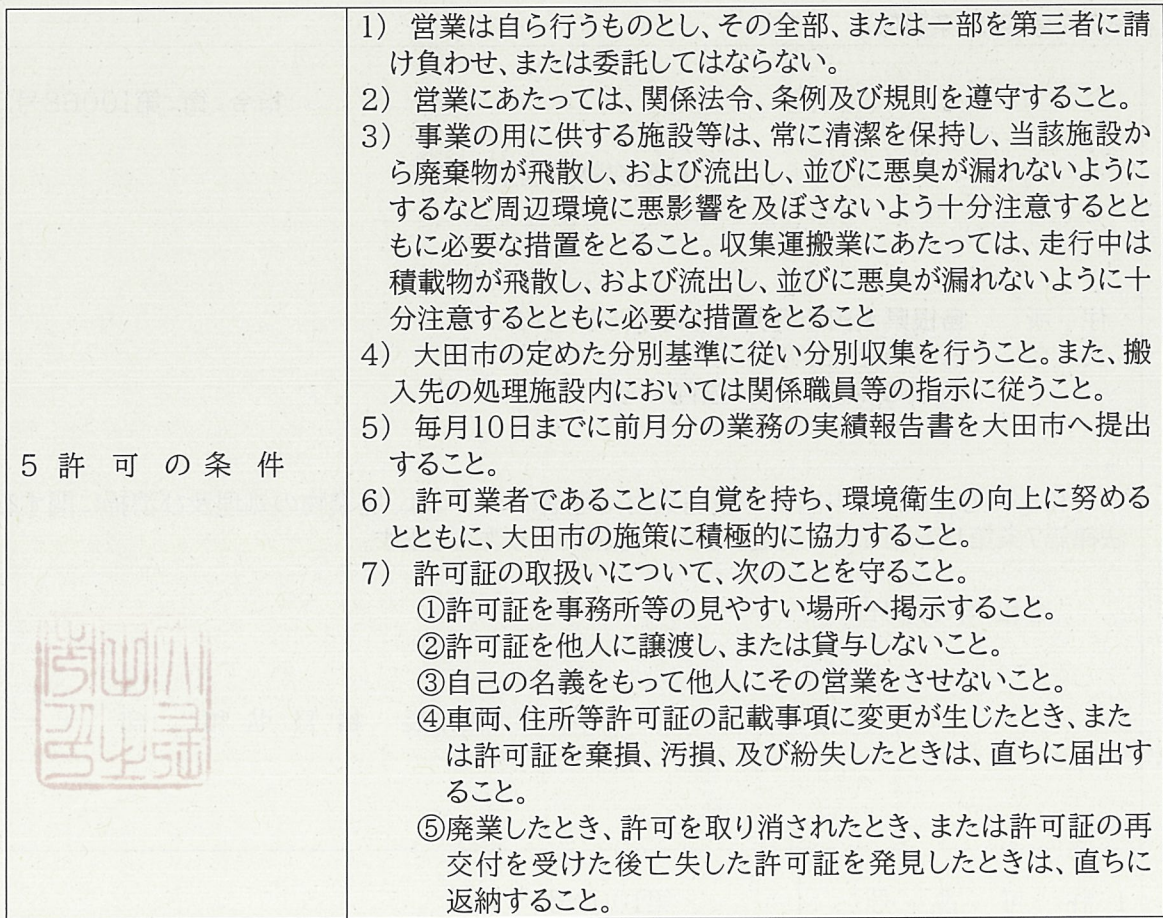 5 許 可 の 条 件
1) 営業は自ら行うものとし、その全部、または一部を第三者に請
け負わせ、または委託してはならない。
2) 営業にあたっては、関係法令、条例及び規則を遵守すること。
3) 事業の用に供する施設等は、常に清潔を保持し、当該施設か
ら廃棄物が飛散し、および流出し、並びに悪臭が漏れないように
するなど周辺環境に悪影響を及ぼさないよう十分注意するとと
もに必要な措置をとること。収集運搬業にあたっては、走行中は
積載物が飛散し、および流出し、並びに悪臭が漏れないように十
分注意するとともに必要な措置をとること
4) 大田市の定めた分別基準に従い分別収集を行うこと。また、搬
入先の処理施設内においては関係職員等の指示に従うこと。
5) 毎月10日までに前月分の業務の実績報告書を大田市へ提出
すること。
6) 許可業者であることに自覚を持ち、環境衛生の向上に努める
とともに、大田市の施策に積極的に協力すること。
7) 許可証の取扱いについて、次のことを守ること。
①許可証を事務所等の見やすい場所へ掲示すること。
②許可証を他人に譲渡し、または貸与しないこと。
③自己の名義をもって他人にその営業をさせないこと。
④車両、住所等許可証の記載事項に変更が生じたとき、また
は許可証を棄損、汚損、及び紛失したときは、直ちに届出す
ること。
⑤廃業したとき、許可を取り消されたとき、または許可証の再
交付を受けた後亡失した許可証を発見したときは、直ちに
返納すること。